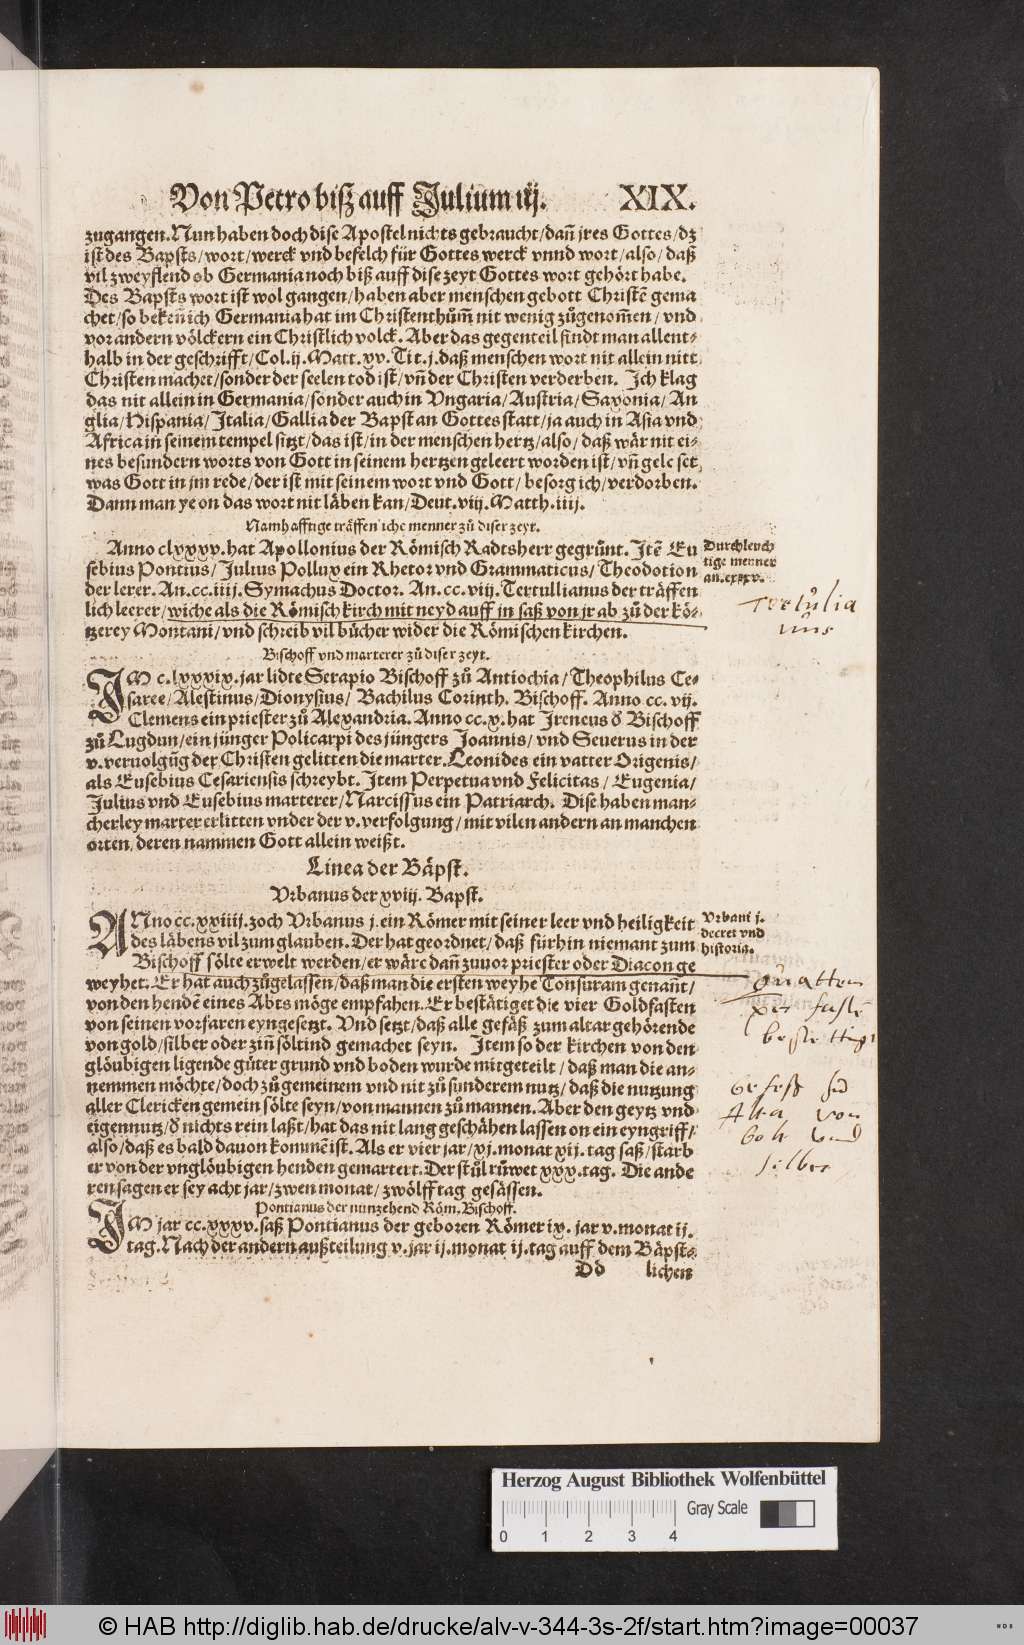 Von Petro biß auff Julium iij. XIX.
zugangen. Nun haben doch dise Apostel nichts gebraucht/dañ jres Gottes/dz
ist des Bapsts/wort/werck vnd befelch für Gottes werck vnnd wort/also/daß
vil zweyflend ob Germania noch biß auff dise zeyt Gottes wort gehört habe.
Des Bapsts wort ist wol gangen/haben aber menschen gebott Christē gema
chet/so bekeñ ich Germania hat im Christenthům̃ nit wenig zůgenom̃en/vnd
vor andern völckern ein Christlich volck. Aber das gegenteil findt man allent-
halb in der geschrifft/Col.ij. Matt.xv. Tit.j. daß menschen wort nit allein nitt
Christen machet/sonder der seelen tod ist/vñ der Christen verderben. Ich klag
das nit allein in Germania/sonder auch in Vngaria/Austria/Saxonia/An
glia/Hispania/Italia/Gallia der Bapst an Gottes statt/ja auch in Asia vnd
Africa in seinem tempel sitzt/das ist/in der menschen hertz/also/daß wär nit ei-
nes besundern worts von Gott in seinem hertzen geleert worden ist/vñ gelesen
was Gott in jm rede/der ist mit seinem wort vnd Gott/besorg ich/verdorben.
Dann man ye on das wort nit läben kan/Deut.viij. Matth.iiij.
Namhafftige träffenliche menner zů diser zeyt.
Anno clxxxv. hat Apollonius der Römisch Radtsherr gegrünt. Itē Eu
sebius Pontius/Julius Pollux ein Rhetor vnd Grammaticus/Theodotion
der lerer. An.cc.iiij. Symachus Doctor. An.cc.viij. Tertullianus der träffen
lich leerer/wiche als die Römisch kirch mit neyd auff in saß von jr ab zů der kö-
tzerey Montani/vnd schreib vil bücher wider die Römischen kirchen.
Durchleuch
tige menner
an.cxxxv.
Tertůlia
nus
Bischoff vnd marterer zů diser zeyt.
IM c.lxxxix. jar lidte Serapio Bischoff zů Antiochia/Theophilus Ce-
saree/Alestinus/Dionysius/Bachilus Corinth. Bischoff. Anno cc.vij.
Clemens ein priester zů Alexandria. Anno cc.x. hat Ireneus ð Bischoff
zů Lugdun/ein jünger Policarpi des jüngers Joannis/vnd Seuerus in der
v. veruolgūg der Christen gelitten die marter. Leonides ein vatter Origenis/
als Eusebius Cesariensis schreybt. Item Perpetua vnd Felicitas/Eugenia/
Julius vnd Eusebius marterer/Narcissus ein Patriarch. Dise haben man-
cherley marter erlitten vnder der v. verfolgung/mit vilen andern an manchen
orten/deren nammen Gott allein weißt.
Linea der Bäpst.
Vrbanus der xviij. Bapst.
ANno cc.xxiiij. zoch Vrbanus j. ein Römer mit seiner leer vnd heiligkeit
des läbens vil zum glauben. Der hat geordnet/daß fürhin niemant zum
Bischoff sölte erwelt werden/er wäre dañ zuuor priester oder Diacon ge
weyhet. Er hat auch zůgelassen/daß man die ersten weyhe Tonsuram genañt/
von den hendē eines Abts möge empfahen. Er bestätiget die vier Goldfasten
von seinen vorfaren eyngesetzt. Vnd setzt/daß alle gefäß zum altar gehörende
von gold/silber oder ziñ söltind gemachet seyn. Item so der kirchen von den
glöubigen ligende güter grund vnd boden wurde mitgeteilt/daß man die an-
nemmen möchte/doch zů gemeinem vnd nit zů sunderem nutz/daß die nutzung
aller Clericken gemein sölte seyn/von mannen zů mannen. Aber den geytz vnd
eigennutz/ð nichts rein laßt/hat das nit lang geschähen lassen on ein eyngriff/
also/daß es bald dauon kommē ist. Als er vier jar/xj. monat xij. tag saß/starb
er von der vnglöubigen henden gemartert. Der stůl růwet xxx. tag. Die ande
ren sagen er sey acht jar/zwen monat/zwölff tag gesässen.
Vrbani j.
decret vnd
historia.
quattem
per fasten
bestettigt
gefess
Altar von
golt vnnd
silber
Pontianus der nünzehend Röm. Bischoff.
IM jar cc.xxxv. saß Pontianus der geboren Römer ix. jar v. monat ij.
tag. Nach der andern außteilung v. jar ij. monat ij. tag auff dem Bäpst-
Dd lichen
Herzog August Bibliothek Wolfenbüttel
Gray Scale
0 1 2 3 4
© HAB http://diglib.hab.de/drucke/alv-v-344-3s-2f/start.htm?image=00037